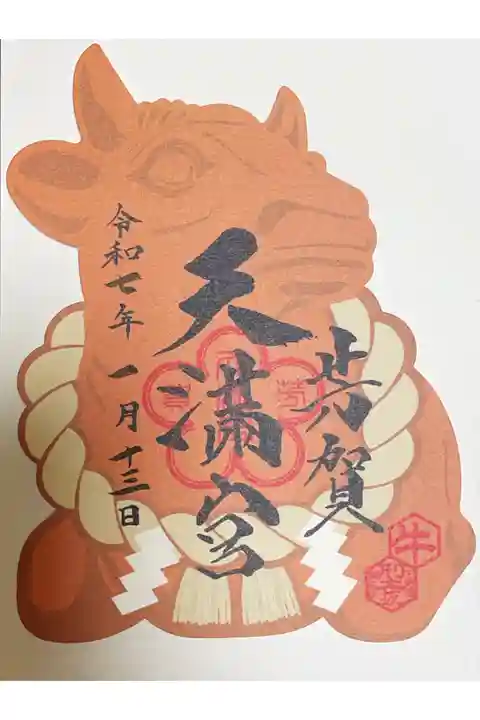 芳賀
天満宮
令和七年 一月十三日
牛